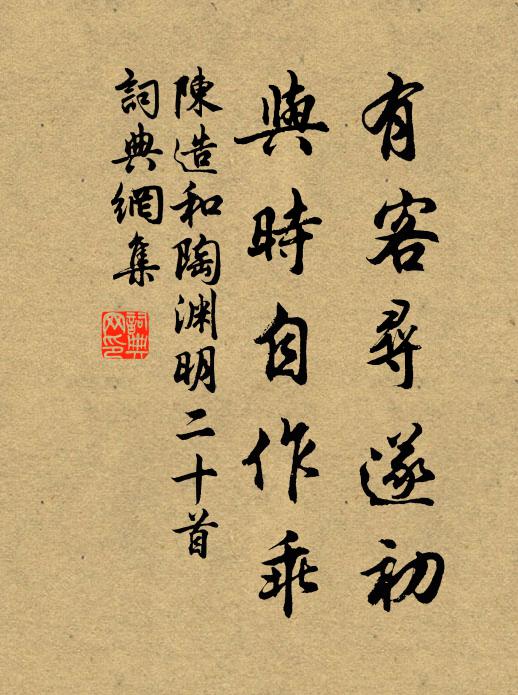 有客尋遂初
與時自作乖
陳造和陶淵明二十首
詞典網集
詞典網印